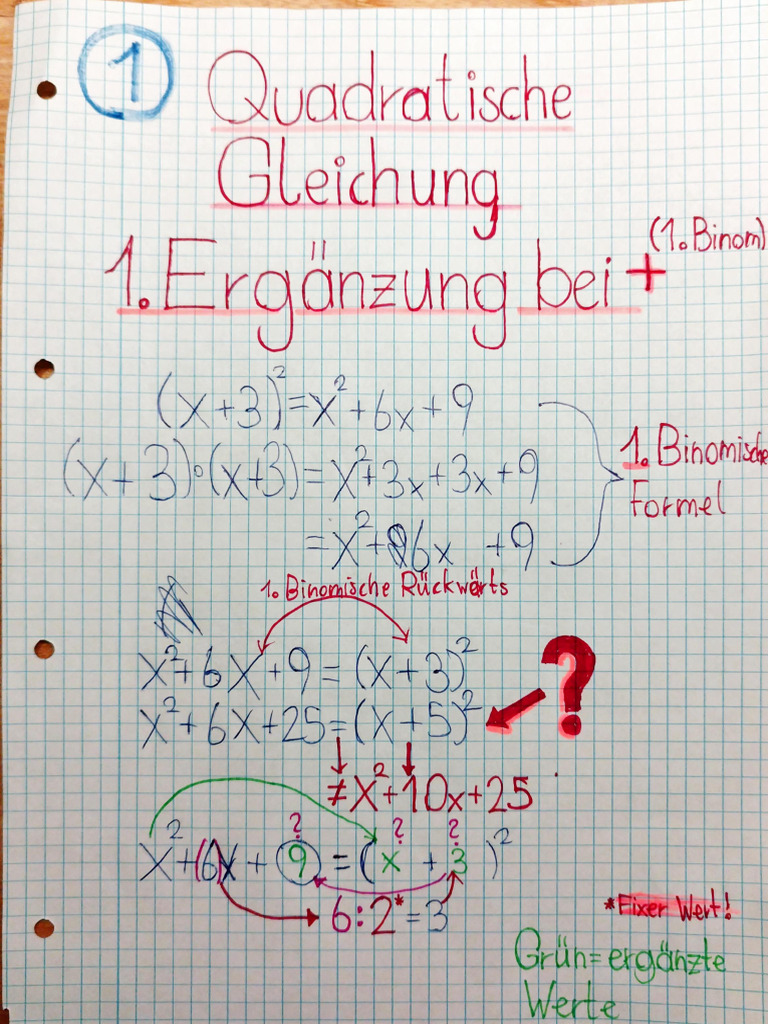 1
Quadratische
Gleichung
(1. Binom)
1. Ergänzung bei +
(x+3)² = x² + 6x + 9
(x+3)·(x+3) = x² + 3x + 3x + 9
= x² + 6x + 9
1. Binomische
Formel
1. Binomische Rückwärts
x² + 6x + 9 = (x+3)²
x² + 6x + 25 = (x+5)²
?
≠ x² + 10x + 25
? ? ?
x² + (6)x + 9 = (x + 3)²
6:2* = 3
*Fixer Wert!
Grün = ergänzte
Werte